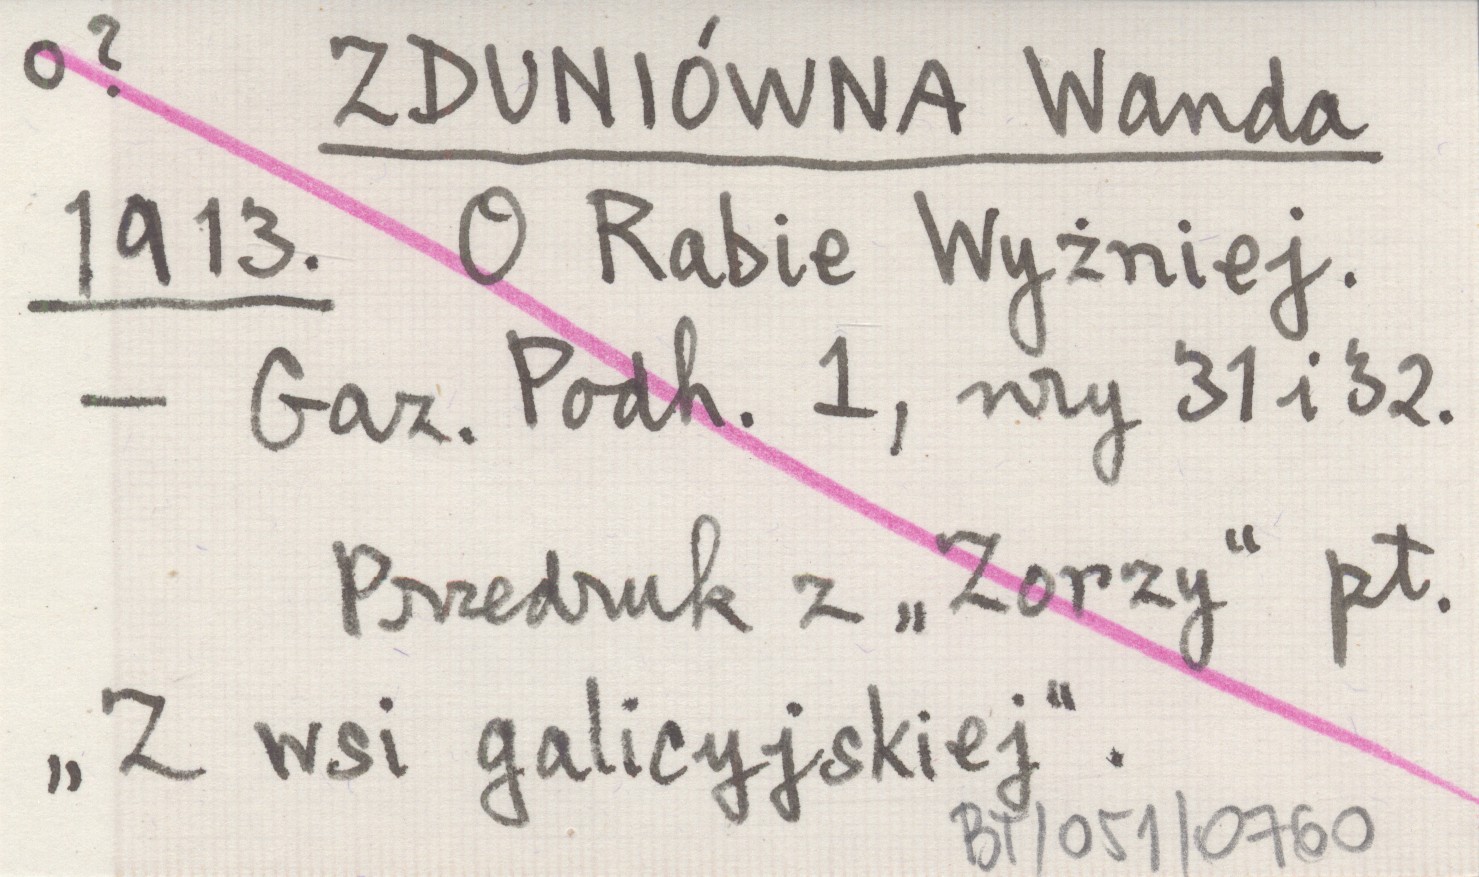 o? ZDUNIÓWNA Wanda
1913. O Rabie Wyżniej.
— Gaz. Podh. 1, nry 31 i 32.
Przedruk z „Zorzy“ pt.
„Z wsi galicyjskiej“.
BT/051/0760